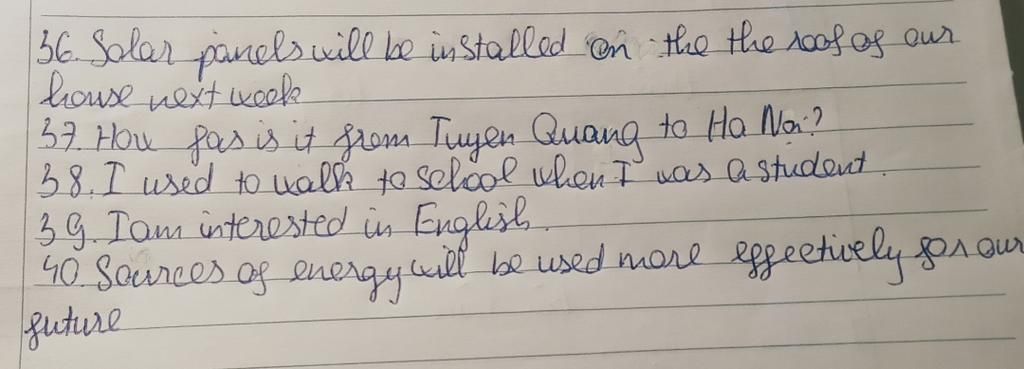 36. Solar panels will be installed on the the roof of our
house next week
37. How far is it from Tuyen Quang to Ha Noi?
38. I used to walk to school when I was a student.
39. I am interested in English.
40. Sources of energy will be used more effectively for our
future